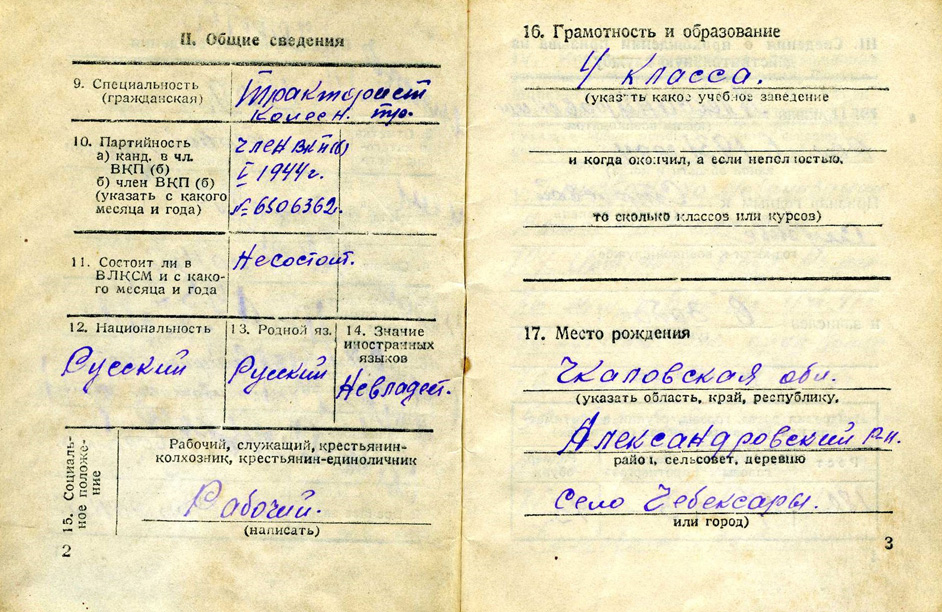 II. Общие сведения
9. Специальность
(гражданская)
Тракторист
колесн. тр.
10. Партийность
а) канд. в чл.
ВКП (б)
б) член ВКП (б)
(указать с какого
месяца и года)
Член ВКП(б)
I 1944 г.
№ 6506362.
11. Состоит ли в
ВЛКСМ и с како-
го месяца и года
Несостоит.
12. Национальность
Русский
13. Родной яз.
Русский
14. Знание
иностранных
языков
Невладеет.
15. Социаль-
ное положе-
ние
Рабочий, служащий, крестьянин-
колхозник, крестьянин-единоличник
Рабочий.
(написать)
2
16. Грамотность и образование
4 класса.
(указать какое учебное заведение
и когда окончил, а если неполностью,
то сколько классов или курсов)
17. Место рождения
Чкаловская обл.
(указать область, край, республику,
Александровский р-н.
район, сельсовет, деревню
село Чебексары.
или город)
3